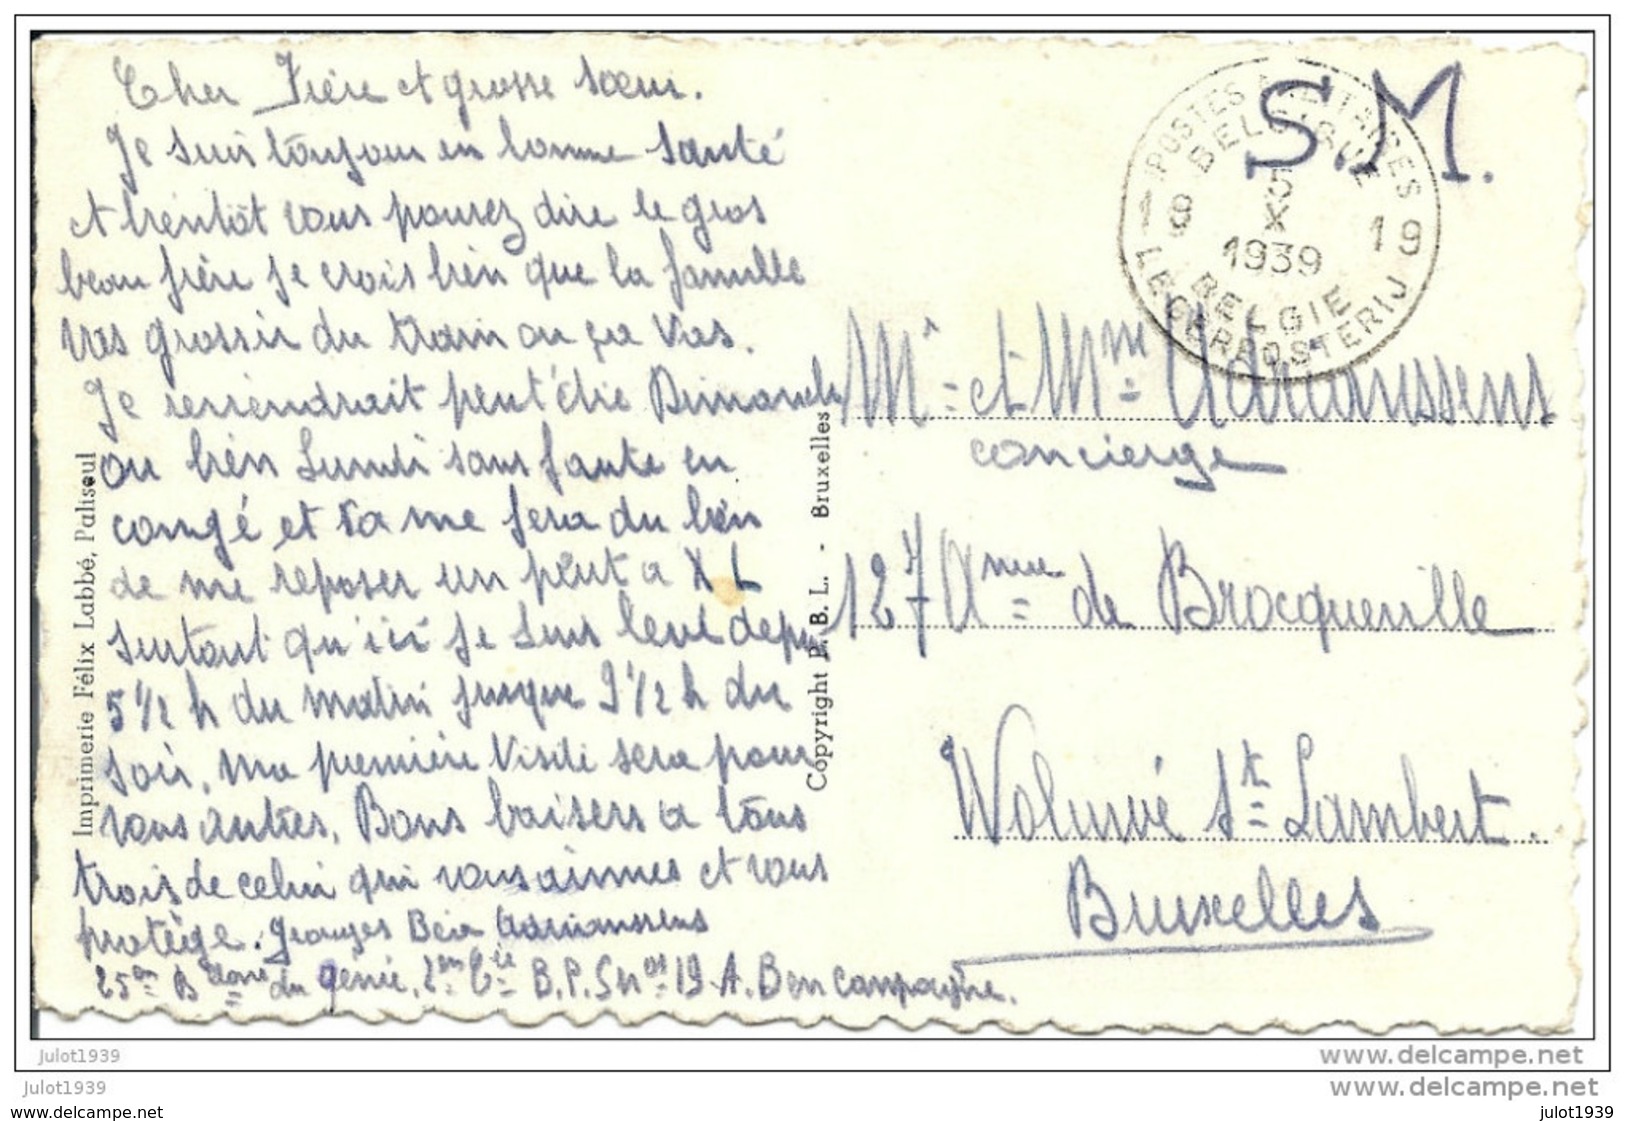 Cher Frère et grosse sœur.
Je suis toujour en bonne santé
et bientôt vous pourez dire le gros
beau frère je crois bien que la famille
vas grossir du train ou ça vas.
Je reviendrait peut'être Dimanche
ou bien Lundi sans faute en
congé et sa me fera du bien
de me reposer un peut a XL
surtout qu'ici je suis levé depuis
5 1/2 h du matin jusque 9 1/2 h du
soir, ma première visite sera pour
vous autres, Bons baisers a tous
trois de celui qui vous aimes et vous
protège. Georges Adriaenssens
25em du génie, 2em Cie B.P.S nos 19 A. B en Campagne.
S.M.
POSTES MILITAIRES
BELGIQUE
5
X
1939
19
BELGIE
LEGERPOSTERIJ
Mr et Mme Adriaenssens
concierge
127 Anue de Brocqueville
Woluwé St Lambert
Bruxelles
Imprimerie Félix Labbé, Paliseul
Copyright P. B. L. - Bruxelles
Julot1939
Julot1939
www.delcampe.net
www.delcampe.net
www.delcampe.net
julot1939